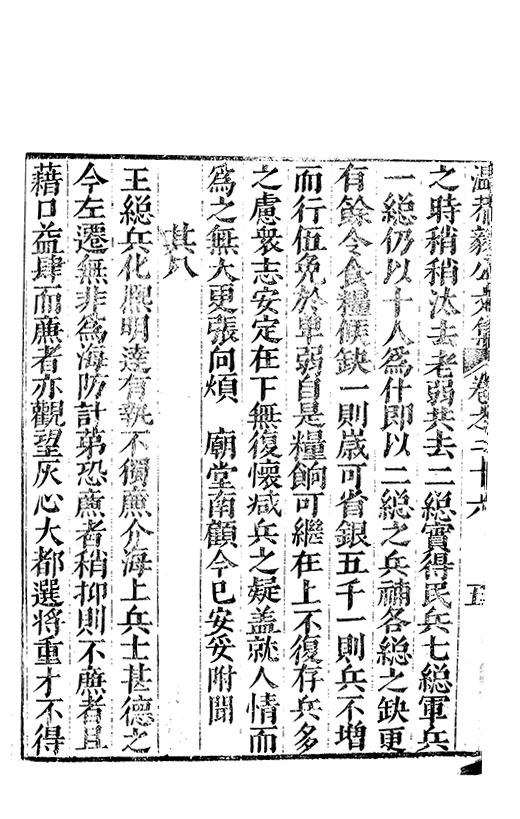 溫恭毅公文集 卷之二十六 五
之時稍稍汰去老弱共去二緫實得民兵七緫軍兵
一緫仍以十人爲什即以二緫之兵補各緫之缺更
有餘令食糧候缺一則嵗可省銀五千一則兵不增
而行伍免於單弱自是糧餉可繼在上不復存兵多
之慮衆志安定在下無復懷減兵之疑盖就人情而
爲之無大更張向煩　廟堂南顧今已安妥附聞
其八
王緫兵化熈明逹有執不獨亷介海上兵士甚德之
今左遷無非爲海防計第恐亷者稍抑則不亷者且
藉口益肆而亷者亦觀望灰心大都選将重才不得